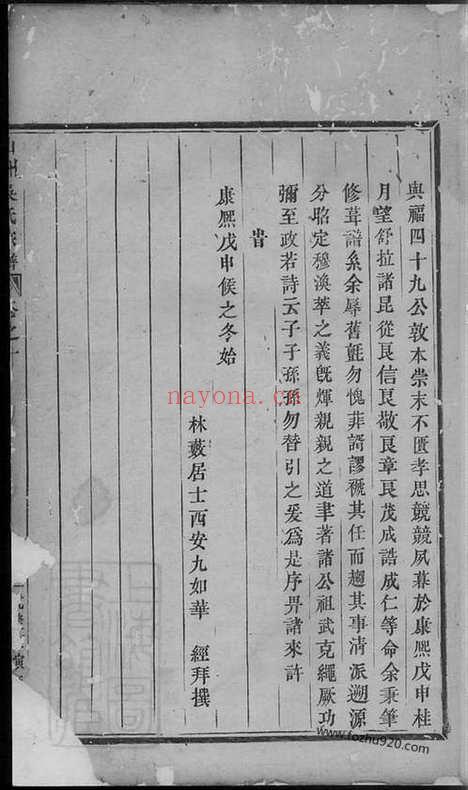 與福四十九公敦本崇末不匱孝思競競夙暮於康熙戊申桂
月望舒拉諸昆從良信良敬良章良茂成誥成仁等命余秉筆
修葺譜系余辱舊氈勿愧菲諝謬褫其任而趨其事清派遡源
分昭定穆渙萃之義旣煇親親之道聿著諸公祖武克繩厥功
彌至政若詩云子子孫孫勿替引之爰爲是序畀諸來許
旹
康熙戊申候之冬始
林藪居士西安九如華 經拜撰
氏
譜
卷之
nayona.cn
www.fozhu920.com